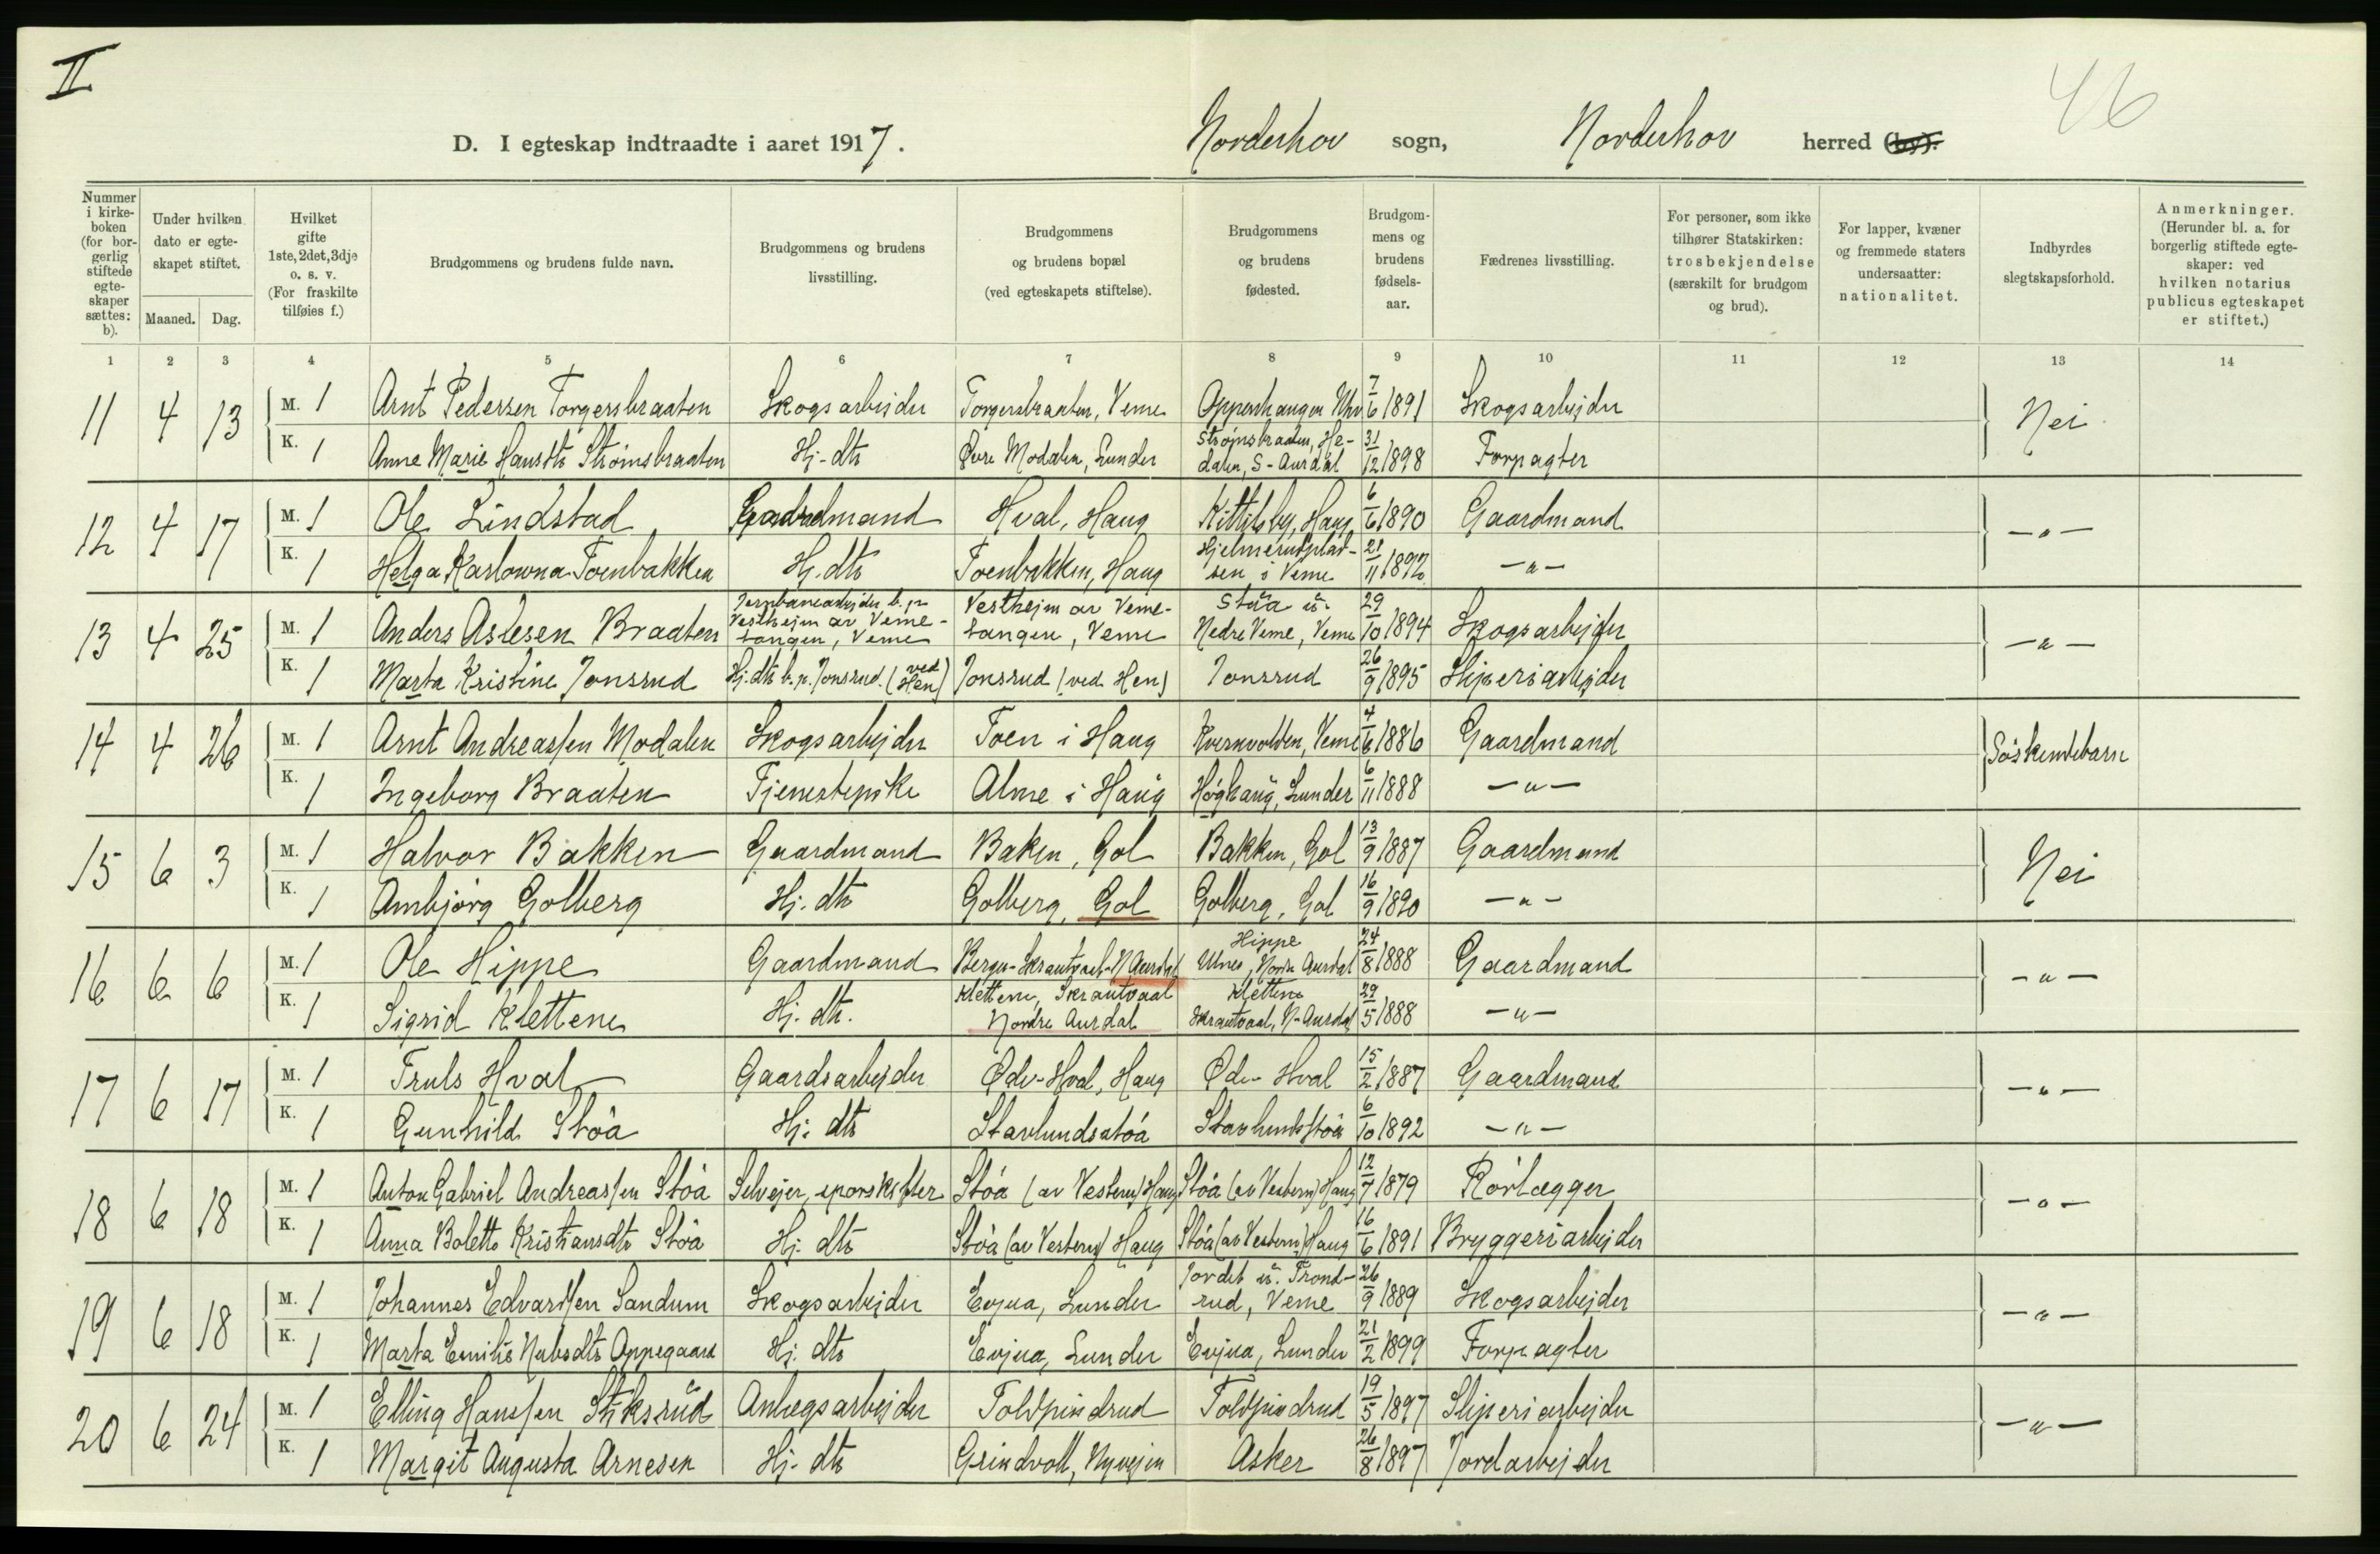 II
46
D. I egteskap indtraadte i aaret 1917. Norderhov sogn, Norderhov herred (by).
Nummer i kirkeboken (for borgerlig stiftede egteskaper sættes: b).
Under hvilken dato er egteskapet stiftet. Maaned. Dag.
Hvilket gifte 1ste, 2det, 3dje o. s. v. (For fraskilte tilføies f.)
Brudgommens og brudens fulde navn.
Brudgommens og brudens livsstilling.
Brudgommens og brudens bopæl (ved egteskapets stiftelse).
Brudgommens og brudens fødested.
Brudgommens og brudens fødselsaar.
Fædrenes livsstilling.
For personer, som ikke tilhører Statskirken: trosbekjendelse (særskilt for brudgom og brud).
For lapper, kvæner og fremmede staters undersaatter: nationalitet.
Indbyrdes slegtskapsforhold.
Anmerkninger. (Herunder bl. a. for borgerlig stiftede egteskaper: ved hvilken notarius publicus egteskapet er stiftet.)
1 2 3 4 5 6 7 8 9 10 11 12 13 14
11 4 13 M. 1 Arnt Pedersen Torgersbraaten Skogsarbejder Torgersbraaten, Veme Oppenhaugen Nhv 7/6 1891 Skogsarbejder Nei
K. 1 Anne Marie Hansdtr Strømsbraaten Hj-dtr Øvre Modalen, Lunder Strømsbraaten, Hedalen, S-Aurdal 31/12 1898 Forpagter
12 4 17 M. 1 Ole Lindstad Gaardmand Hval, Haug Kittilsby, Haug 6/6 1890 Gaardmand -"-
K. 1 Helga Karlowna Toenbakken Hj. dtr Toenbakken, Haug Hjelmerudpladsen i Veme 21/11 1892 -"-
13 4 25 M. 1 Anders Aslesen Braaten Jernbanearbejder b. p. Vestheim av Vemetangen, Veme Vestheim av Vemetangen, Veme Støa u. Nedre Veme, Veme 29/10 1894 Skogsarbejder -"-
K. 1 Marta Kristine Jonsrud Hj. dtr b. p. Jonsrud (ved Hen) Jonsrud (ved Hen) Jonsrud 26/9 1895 Sliperiarbejder
14 4 26 M. 1 Arnt Andreassen Modalen Skogsarbejder Toen i Haug Kvernvolden, Veme 4/6 1886 Gaardmand Søskendebarn
K. 1 Ingeborg Braaten Tjenestepike Alme i Haug Høghaug, Lunder 6/11 1888 -"-
15 6 3 M. 1 Halvor Bakken Gaardmand Baken, Gol Bakken, Gol 13/9 1887 Gaardmand Nei
K. 1 Ambjørg Golberg Hj. dtr Golberg, Gol Golberg, Gol 16/9 1890 -"-
16 6 6 M. 1 Ole Hippe Gaardmand Berge-Skrautvaal-N Aurdal Hippe Ulnes, Nordre Aurdal 24/8 1888 Gaardmand -"-
K. 1 Sigrid Klettene Hj. dtr. Klettene, Skrautvaal Nordre Aurdal Klettene Skrautvaal, N-Aurdal 29/5 1888 -"-
17 6 17 M. 1 Truls Hval Gaardsarbejder Øde-Hval, Haug Øde Hval 15/2 1887 Gaardmand -"-
K. 1 Gunhild Støa Hj. dtr Stavlundsstøa Stavlundsstøa 6/10 1892 -"-
18 6 18 M. 1 Anton Gabriel Andreassen Støa Selvejer, sporskifter Støa (av Vestern) Haug Støa (av Vestern) Haug 12/7 1879 Rørlægger -"-
K. 1 Anna Bolette Kristiansdtr Støa Hj. dtr Støa (av Vestern) Haug Støa (av Vestern) Haug 16/6 1891 Bryggeriarbejder
19 6 18 M. 1 Johannes Edvardsen Sandum Skogsarbejder Evjua, Lunder Jordet u. Trondrud, Veme 26/9 1889 Skogsarbejder -"-
K. 1 Marta Emilie Oppegaard Hj. dtr Evjua, Lunder Evjua, Lunder 21/2 1899 Forpagter
20 6 24 M. 1 Elling Hanssen Stiksrud Anlægsarbejder Toldpindrud Toldpindrud 19/5 1897 Sliperiarbejder -"-
K. 1 Margit Augusta Arnesen Hj. dtr Grindvoll, Asker 26/8 1897 Jordarbejder